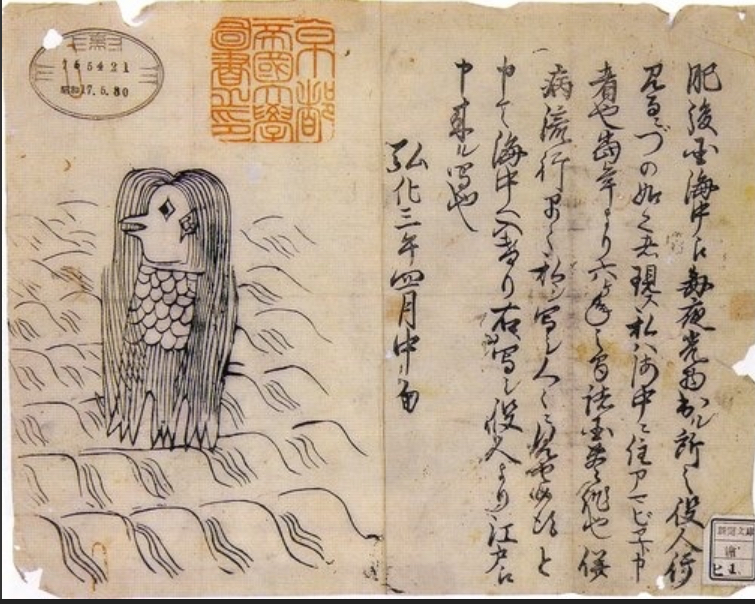 肥後国海中え毎夜光物出ル所之役人行
見るニづの如く者現ス私ハ海中ニ住アマビヱト申
者也当年より六ヶ年之間諸国豊作也併
病流行早々私シ写シ人々ニ見セ候得と
申て海中へ入けり右写シ役人より江戸え
申来ル写也
弘化三年四月中旬
京都
帝國大學
圖書之印
昭和17.5.30
新聞文庫